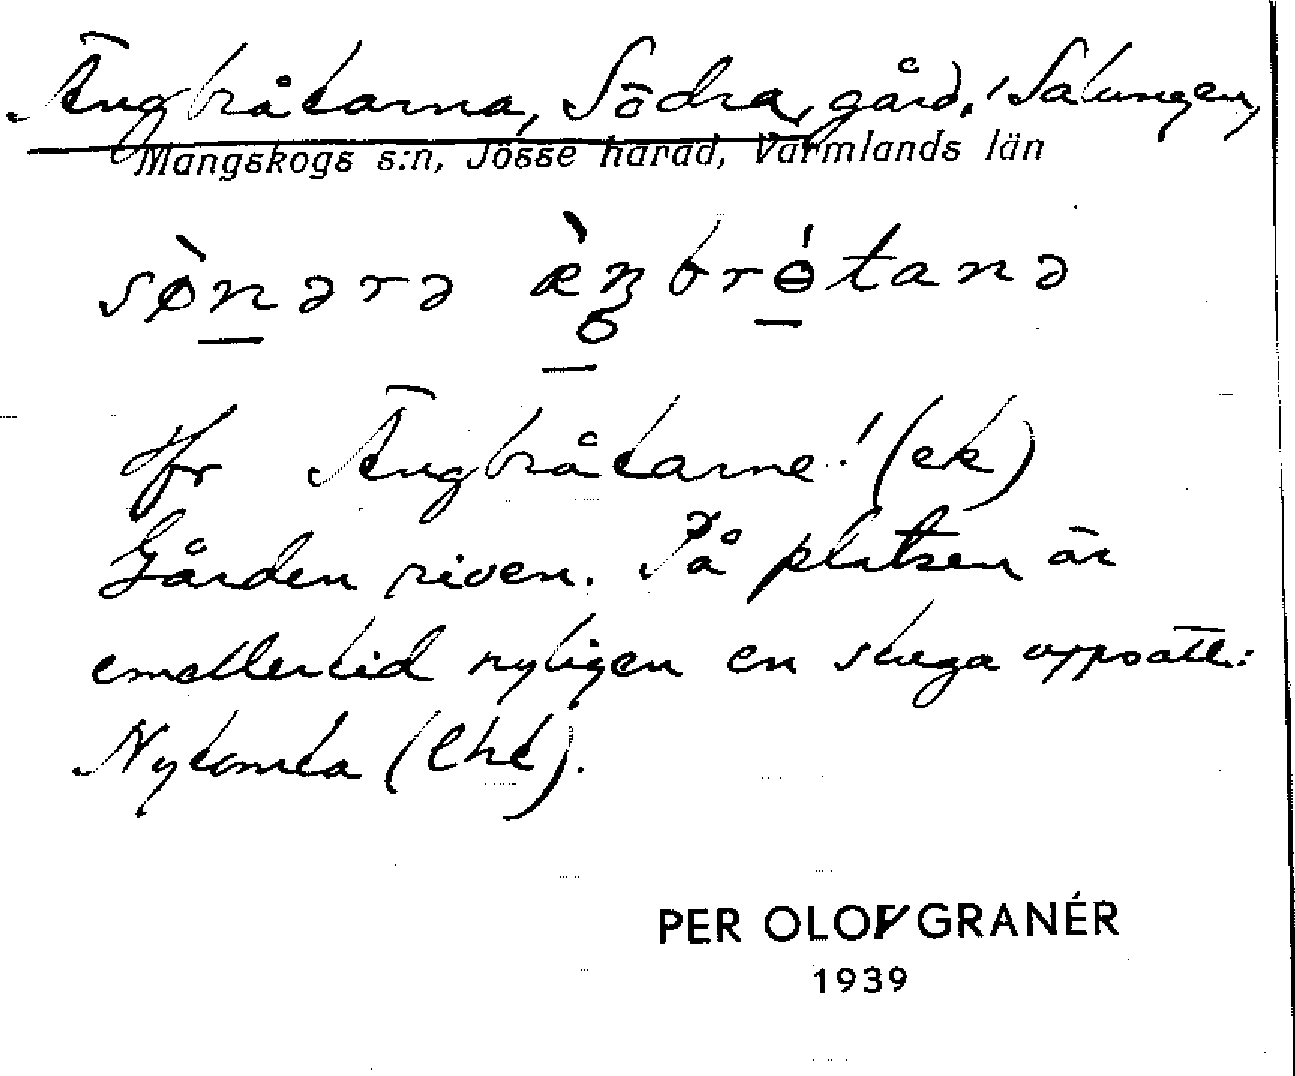 Ängbråtarna, Södra, gård, i Salungen,
Mangskogs s:n, Jösse härad, Värmlands län
sø̀nərə æ̀ŋbrɵ́tanə
Hfr Ängbråtarne! (ek)
Gården riven. På platsen är
emellertid nyligen en stuga uppsatt:
Nytomta (Eht).
PER OLOF GRANÉR
1939